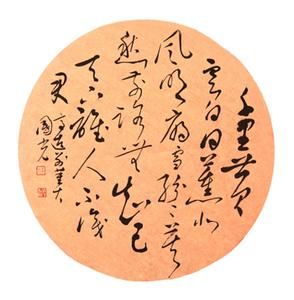 千里黃
雲白日曛北
風吹雁雪紛〻莫
愁前路無知己
天下誰人不識
君 高適別董大
國光